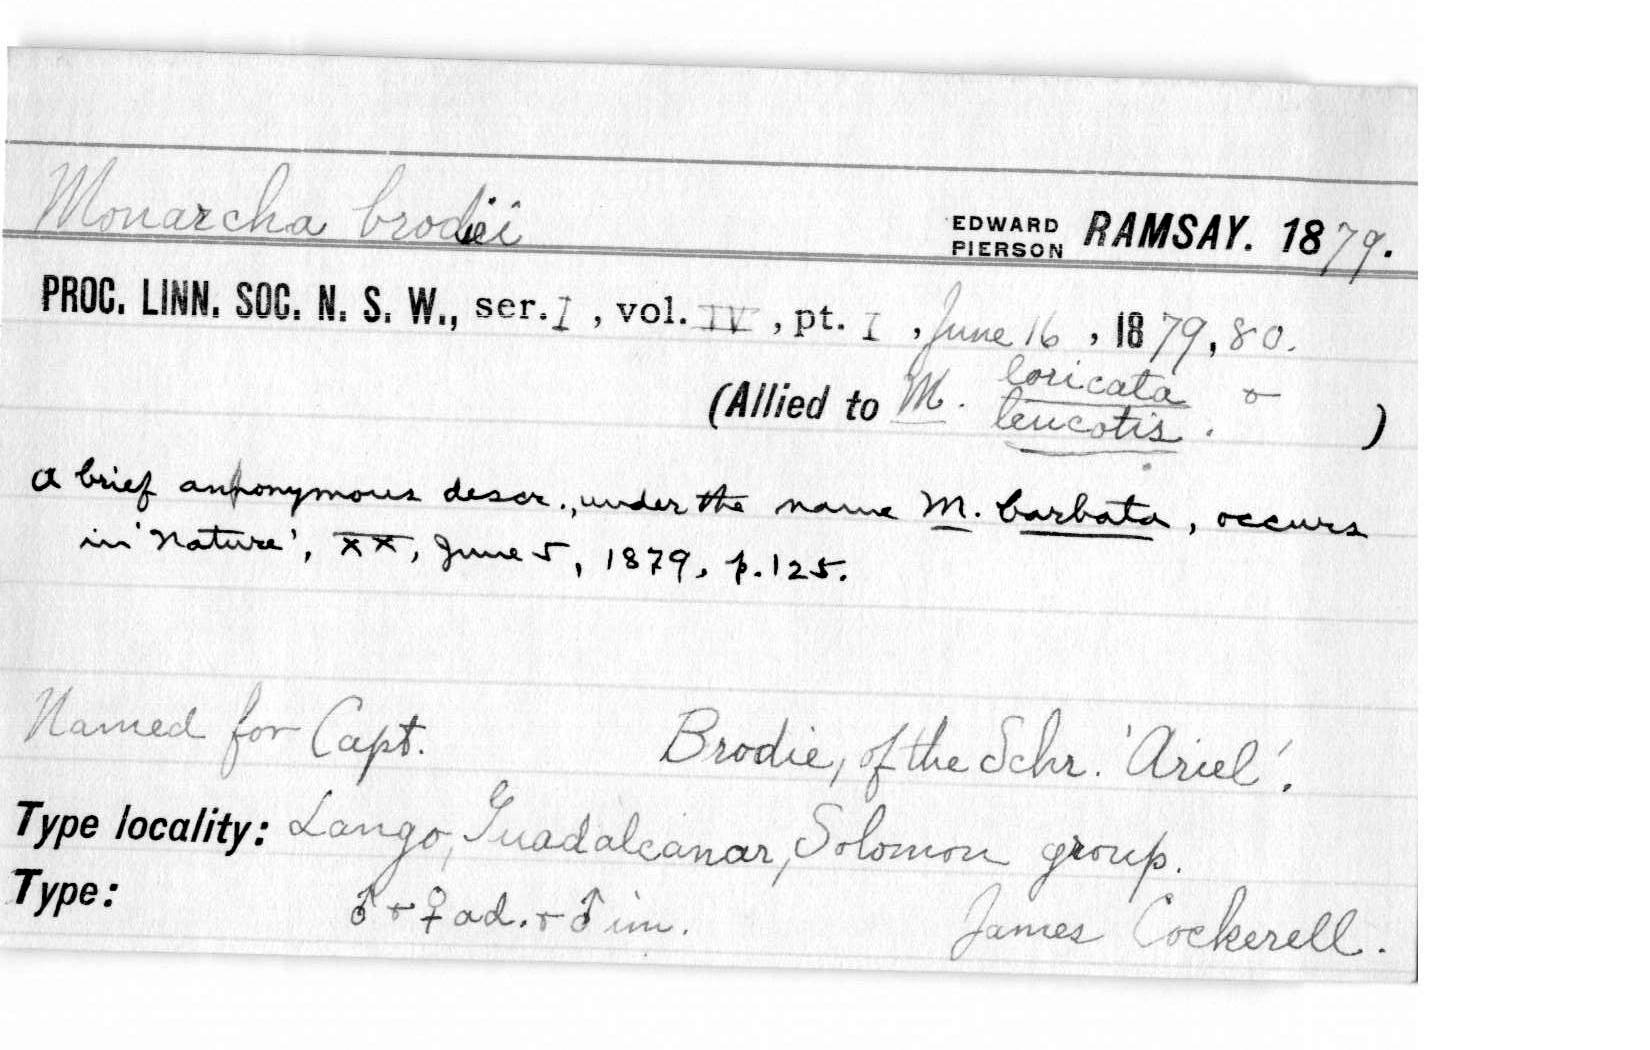 Monarcha brodiei
EDWARD PIERSON RAMSAY. 1879.
PROC. LINN. SOC. N. S. W., ser. I, vol. IV, pt. I, June 16, 1879, 80.
(Allied to M. loricata &
leucotis. )
A brief anonymous descr., under the name M. barbata, occurs
in 'Nature', XX, June 5, 1879, p. 125.
Named for Capt. Brodie, of the Schr. 'Ariel'.
Type locality: Lango, Guadalcanar, Solomon group.
Type: ♂ & ♀ ad. & ♂ im. James Cockerell.